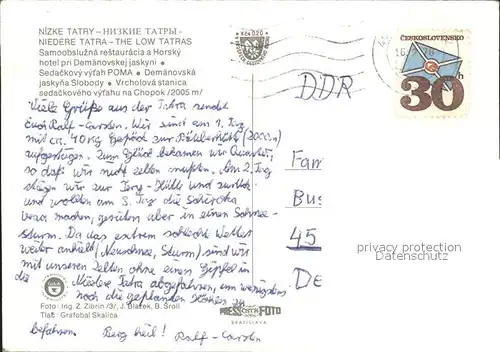 NÍZKE TATRY – НИЗКИЕ ТАТРЫ –
NIEDERE TATRA – THE LOW TATRAS
Samoobslužná reštaurácia a Horský
hotel pri Demänovskej jaskyni •
Sedačkový výťah POMA • Demänovská
jaskyňa Slobody • Vrcholová stanica
sedačkového výťahu na Chopok /2005 m/
ČESKOSLOVENSKO
30h
DDR
Viele Grüße aus der Tatra sendet
Euch Ralf-Carsten. Wir sind am 1. Tag
mit ca. 40 kg Gepäck zur (2000m)
aufgestiegen. Zum Glück bekamen wir Quartier,
so daß wir nicht zelten mußten. Am 2. Tag
stiegen wir zur Hütte und zurück
und wollten am 3. Tag die
machen, gerieten aber in einen Schnee-
sturm. Da das extrem schlechte Wetter
weiter anhielt (Neuschnee, Sturm) sind wir
mit unseren Zelten ohne einen Gipfel in
die Niedere Tatra abgefahren, um wenigstens
noch die geplanten Höhlen zu
befahren. Berg heil! Ralf-Carsten
Fam
Bu
45
DE
privacy protection
Datenschutz
Foto: Ing. Z. Zibrín /3/, J. Blažek, B. Šroll
Tlač: Grafobal Skalica
PRESSFOTO
BRATISLAVA